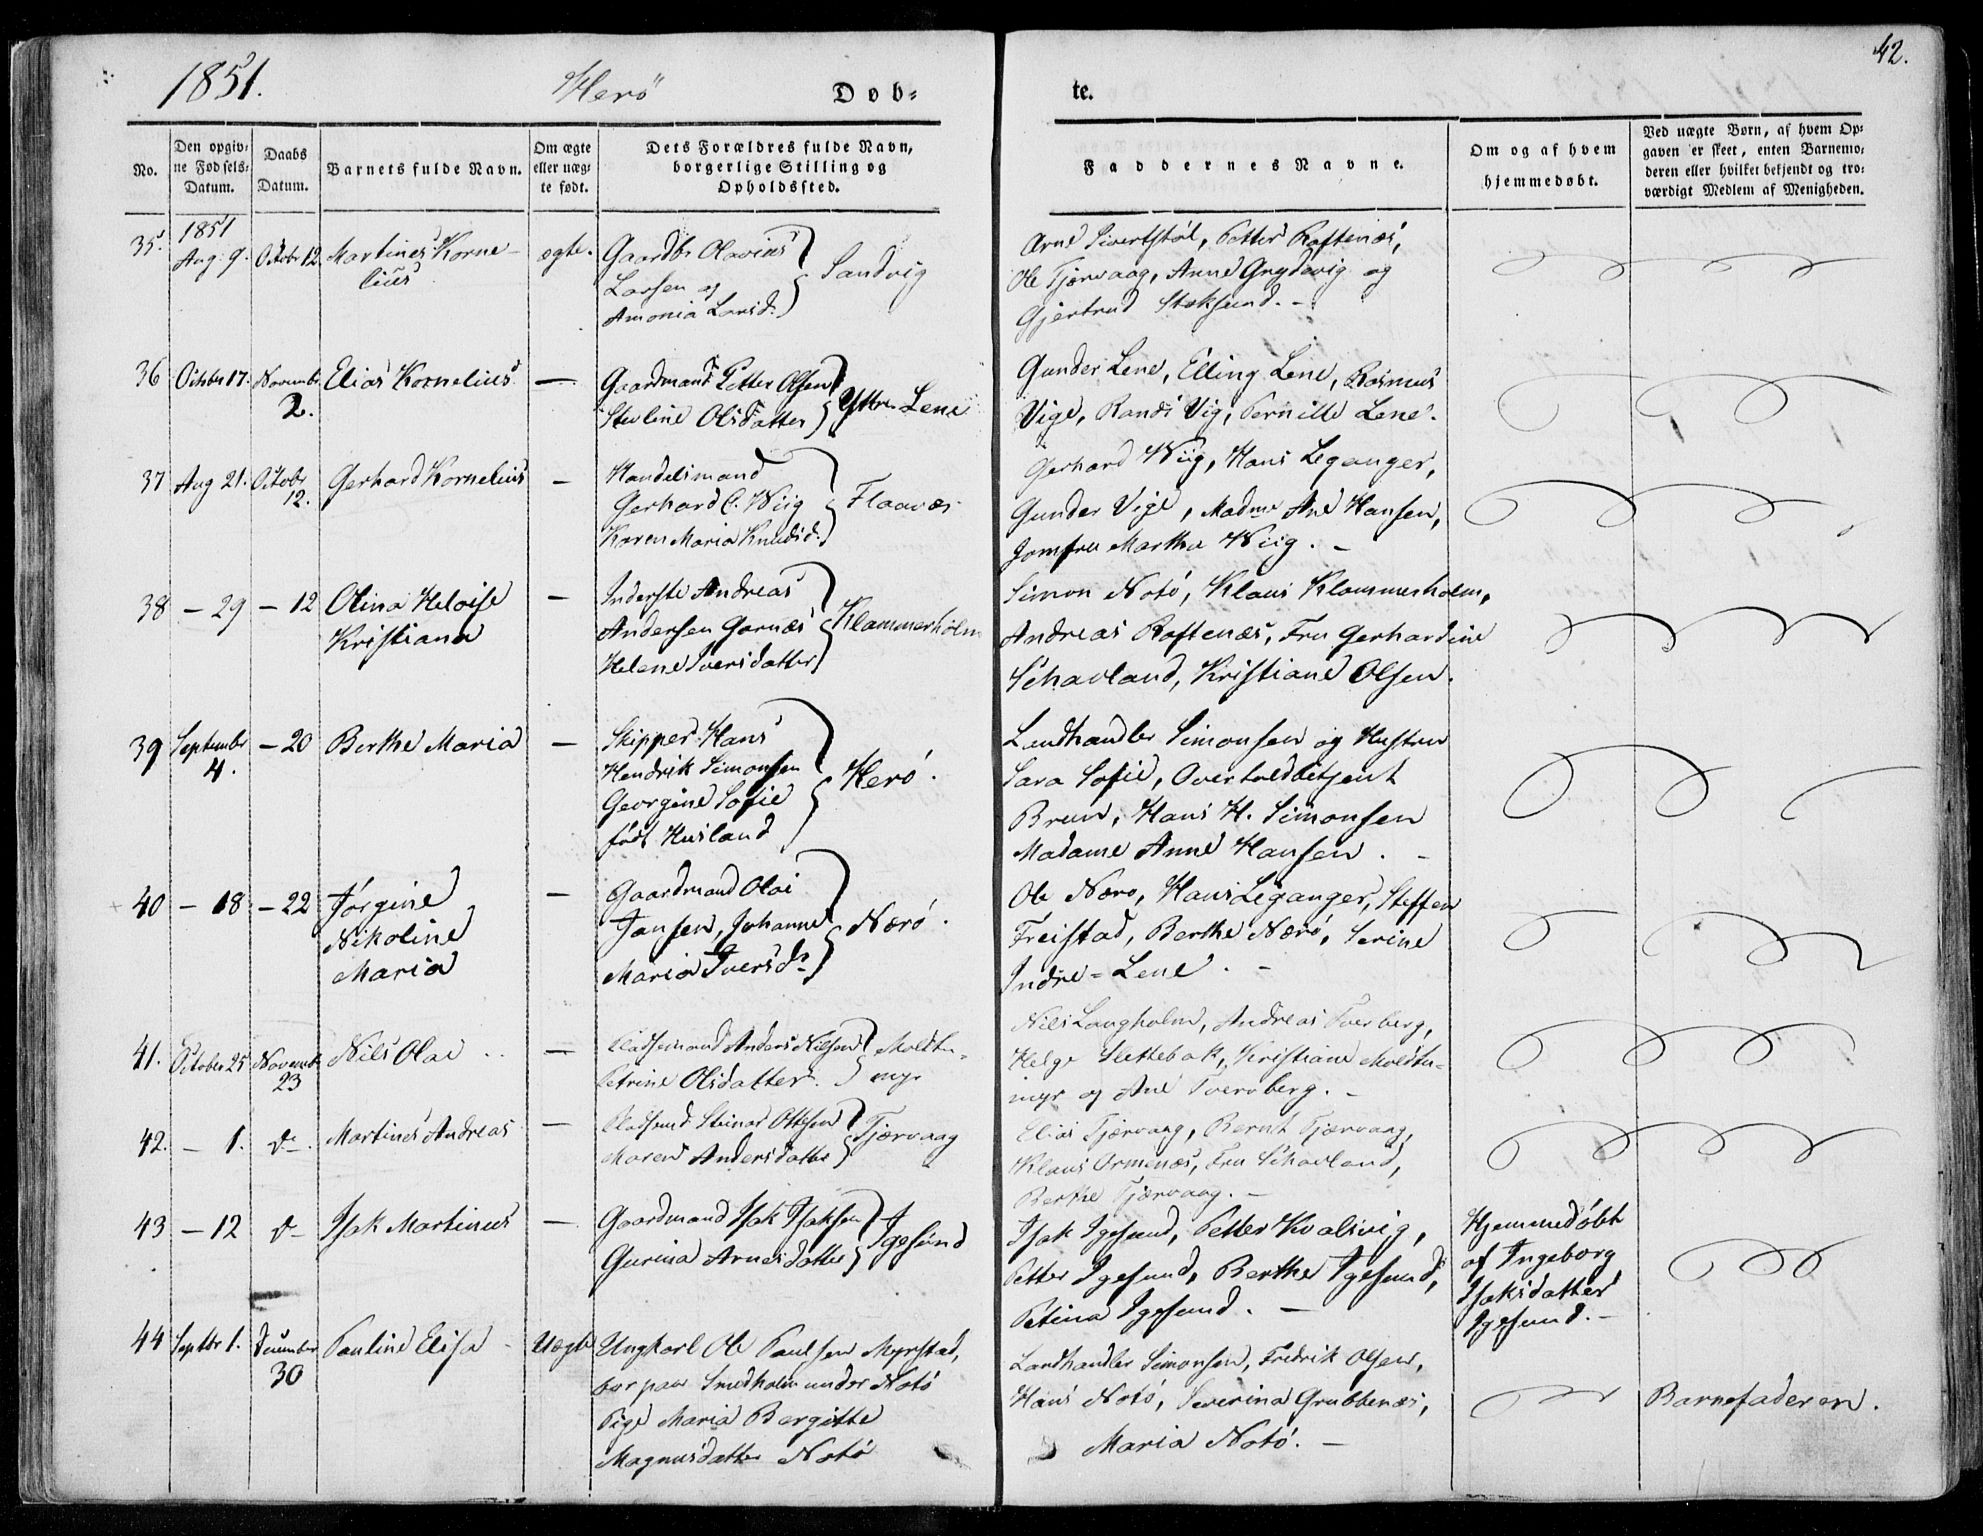 1851.
Herö
Døb-
te.
42.
No.
Den opgiv-
ne Fødsels-
Datum.
Daabs
Datum.
Barnets fulde Navn.
Om ægte
eller uæg-
te født.
Dets Forældres fulde Navn,
borgerlige Stilling og
Opholdssted.
Faddernes Navne.
Om og af hvem
hjemmedøbt.
Ved uægte Børn, af hvem Op-
gaven er skeet, enten Barnemo-
deren eller hvilket bekjendt og tro-
værdigt Medlem af Menigheden.
35. 1851 Aug. 9. Octobr 12. Martines Korne-
lius
ægte.
Gaardbr Olavius
Larsen og
Amonia Larsd.
Sandvig
Arne Sivertstøl, Petter Røftenæs,
Ole Tjørvaag, Anne Grydevig og
Gjertrud Stoksund. –
36 Octobr 17. Novembr 2. Elias Kornelius –
Gaardmand Petter Olsen
Steoline Olsdatter
Yttre Lene
Gunder Lene, Elling Lene, Rasmus
Vige, Randi Vig, Pernille Lene.
37 Aug 21. Octobr 12. Gerhard Kornelius –
Handelsmand
Gerhard C. Wiig
Karen Maria Knudsd.
Flaavær
Gerhard Wiig, Hans Leganger,
Gunder Vige, Madme Ane Hansen,
Jomfru Martha Wiig. –
38 – 29 – 12 Olina Heloise
Kristiana
–
Inderste Andreas
Andersen Garnæs
Helene Iversdatter
Klammerholm
Simon Notö, Klaus Klammerholm,
Andreas Røftenæs, Fru Gerhardine
Schavland, Kristiane Olsen.
39 Septembr 4. – 20 Berthe Maria –
Skipper Hans
Hendrik Simonsen
Georgine Sofie
født Husland
Herö.
Landhandler Simonsen og Hustru
Sara Sofie, Overtoldbetjent
Brun, Hans H. Simonsen
Madame Anne Hansen. –
40 – 18 – 22 Jörgine
Nikoline
Maria
–
Gaardmand Olai
Jansen, Johanne
Maria Iversdr
Nærö.
Ole Nærö, Hans Leganger, Steffen
Freistad, Berthe Nærö, Serine
Indre-Lene. –
41. October 25 Novembr 23 Nils Olai –
Pladsemand Anders Nilsen
Petrine Olsdatter.
Moldtu-
myr
Nils Langholm, Andreas Tverberg,
Helge Slettebak, Kristiane Moldtu-
myr og Ane Tverberg. –
42. – 1. do. Martines Andreas –
Pladsmd Steinar Ottesen
Maren Andersdatter
Tjørvaag
Elias Tjørvaag, Bernt Tjørvaag,
Klaus Ormenæs, Fru Schavland,
Berthe Tjørvaag. –
43 – 12 do Isak Martinus –
Gaardmand Isak Isaksen
Gurina Arnesdatter
Igesund
Isak Igesund, Petter Kvalsvig,
Petter Igesund, Berthe Igesund,
Petina Igesund. –
Hjemmedöbt
af Ingeborg
Isaksdatter
Igesund. –
44 Septbr 1. December 30 Pauline Elisa – Uægte
Ungkarl Ole Paulsen Myrstad,
bor paa Smedholm under Notö
Pige Maria Bergitte
Magnusdatter Notö
Landhandler Simonsen, Fredrik Olsen,
Hans Notö, Severina Grubbenæs,
Maria Notö. –
Barnefaderen.